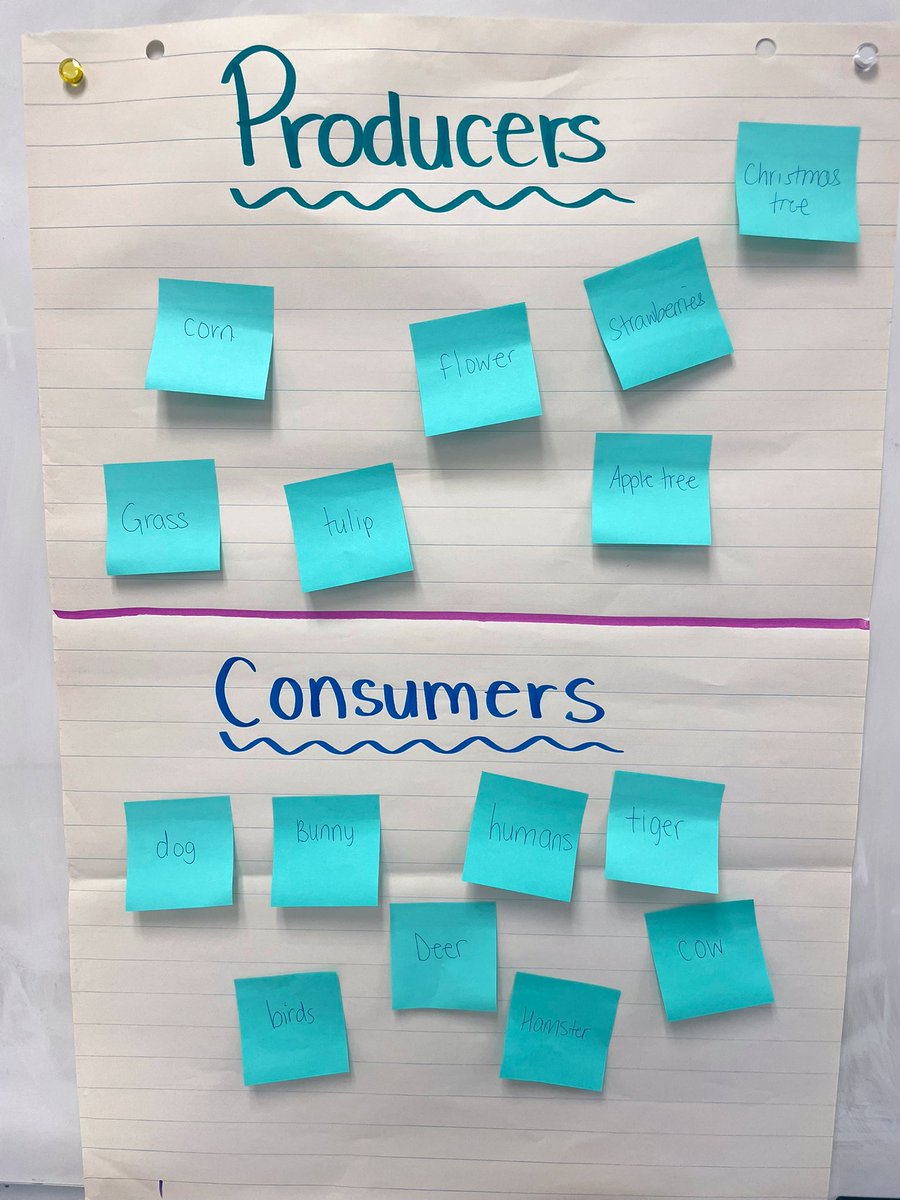 Producers
Christmas
tree
corn
flower
Strawberries
Grass
tulip
Apple tree
Consumers
dog
Bunny
humans
tiger
Deer
cow
birds
Hamster